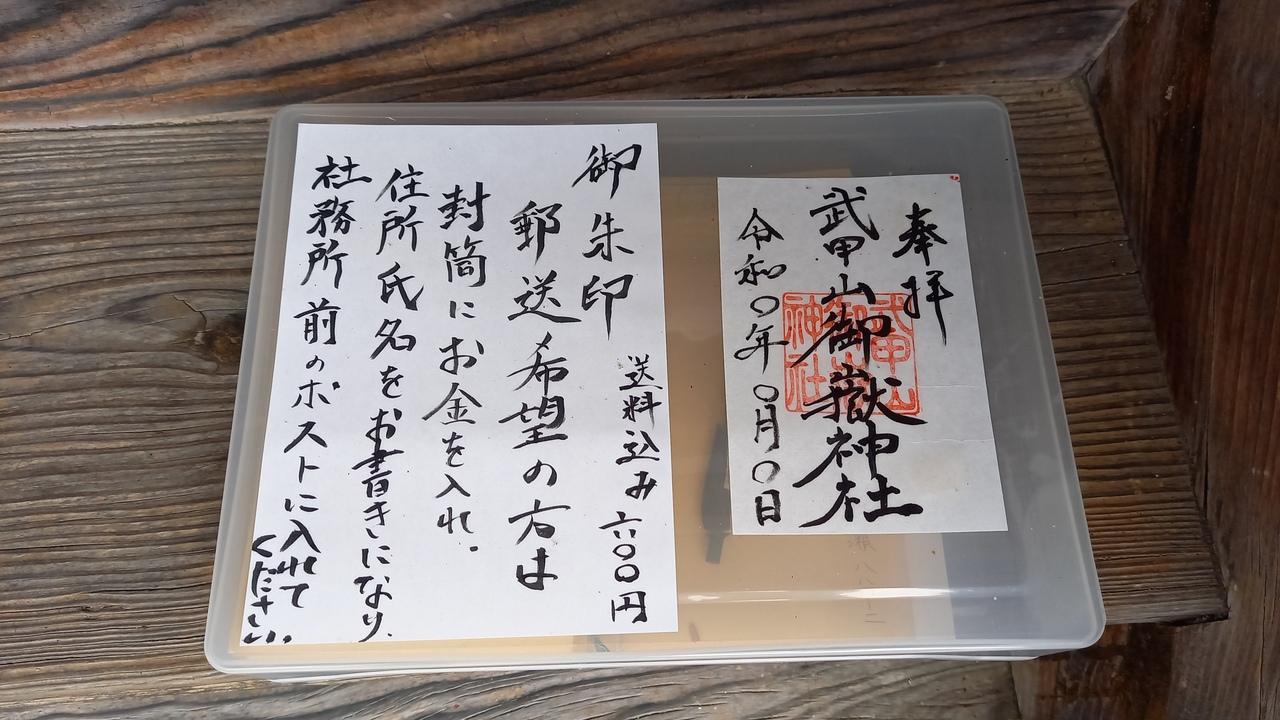 御朱印 送料込み 六〇〇円
郵送希望の方は
封筒にお金を入れ.
住所氏名をお書きになり.
社務所前のポストに入れて
ください.
奉拝
武甲山御嶽神社
令和〇年〇月〇日
武甲山
神社